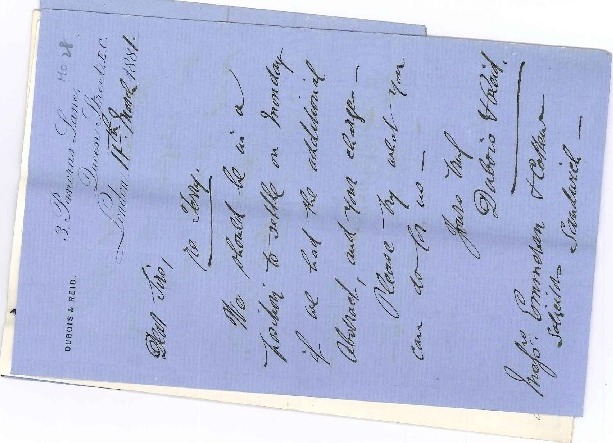 Ho 28
DUBOIS & REID.
3, Pancras Lane,
Queen Street, E.C.
London 11th March 1881.
Dear Sirs,
re Story.
We should be in a
position to settle on Monday
if we had the additional
Abstract, and your charges —
Please try what you
can do for us —
Yours truly
Dubois & Reid.
Messrs Emmerson &
Solicitors Sandwich —